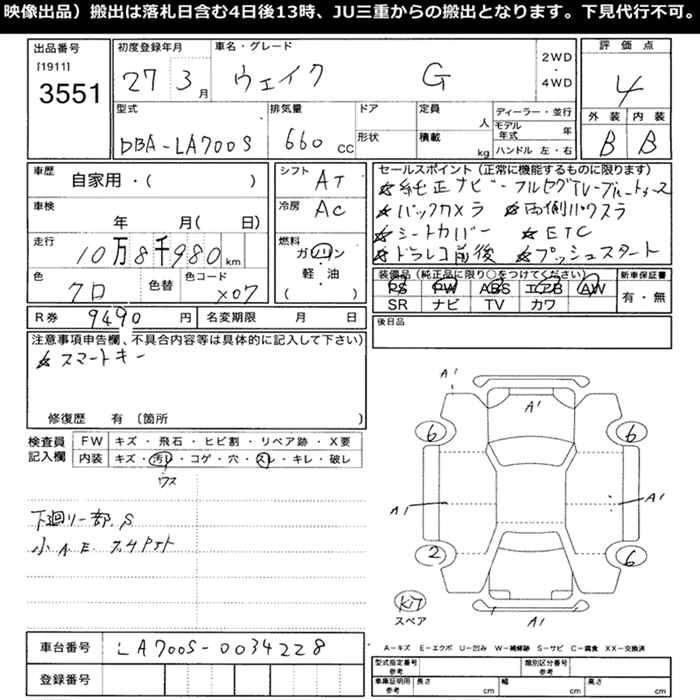 映像出品）搬出は落札日含む4日後13時、JU三重からの搬出となります。下見代行不可。
出品番号 初度登録年月 車名・グレード 2WD ・ 4WD 評価点
[1911] 3551 27 3月 ウェイク G 4
型式 排気量 ドア 定員 人 ディーラー・並行 外装 内装
DBA-LA700S 660 CC 形状 積載 kg モデル年式 年 B B
ハンドル 左・右
車歴 自家用・( ) シフト AT セールスポイント（正常に機能するものに限ります）
☆純正ナビ-フルセグTV-ブルートゥース
車検 年 月( 日) 冷房 AC ☆バックカメラ ☆両側パワスラ
☆シートカバー ☆ETC
走行 10万8千980km 燃料 ガソリン ☆ドラレコ前後 ☆プッシュスタート
軽・油
( )
色 クロ 色替 色コード X07 装備品（純正品に限り○をつけてください） 新車保証書
PS PW ABS エアB AW 有・無
SR ナビ TV カワ
R券 9490円 名変期限 月 日 後日品
注意事項申告欄、不具合内容等は具体的に記入して下さい)
☆スマートキー
修復歴 有 〔箇所
検査員記入欄 FW キズ・飛石・ヒビ割・リペア跡・X要
内装 キズ・汚レ・コゲ・穴・スレ・キレ・破レ
ウス
下廻り一部.S
小A.E
A1
A1
6 6
A1 A1
2 6
Kit
スペア
A1
車台番号 LA700S-0034228
A-キズ E-エクボ U-凹み W-補修跡 S-サビ C-腐食 XX-交換済
登録番号 型式指定番号 参考 類別区分番号 参考
車庫証明用 参考 長さ cm 幅 cm 高さ cm